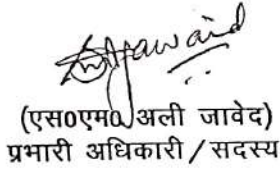 (एस0एम0 अली जावेद)
प्रभारी अधिकारी / सदस्य